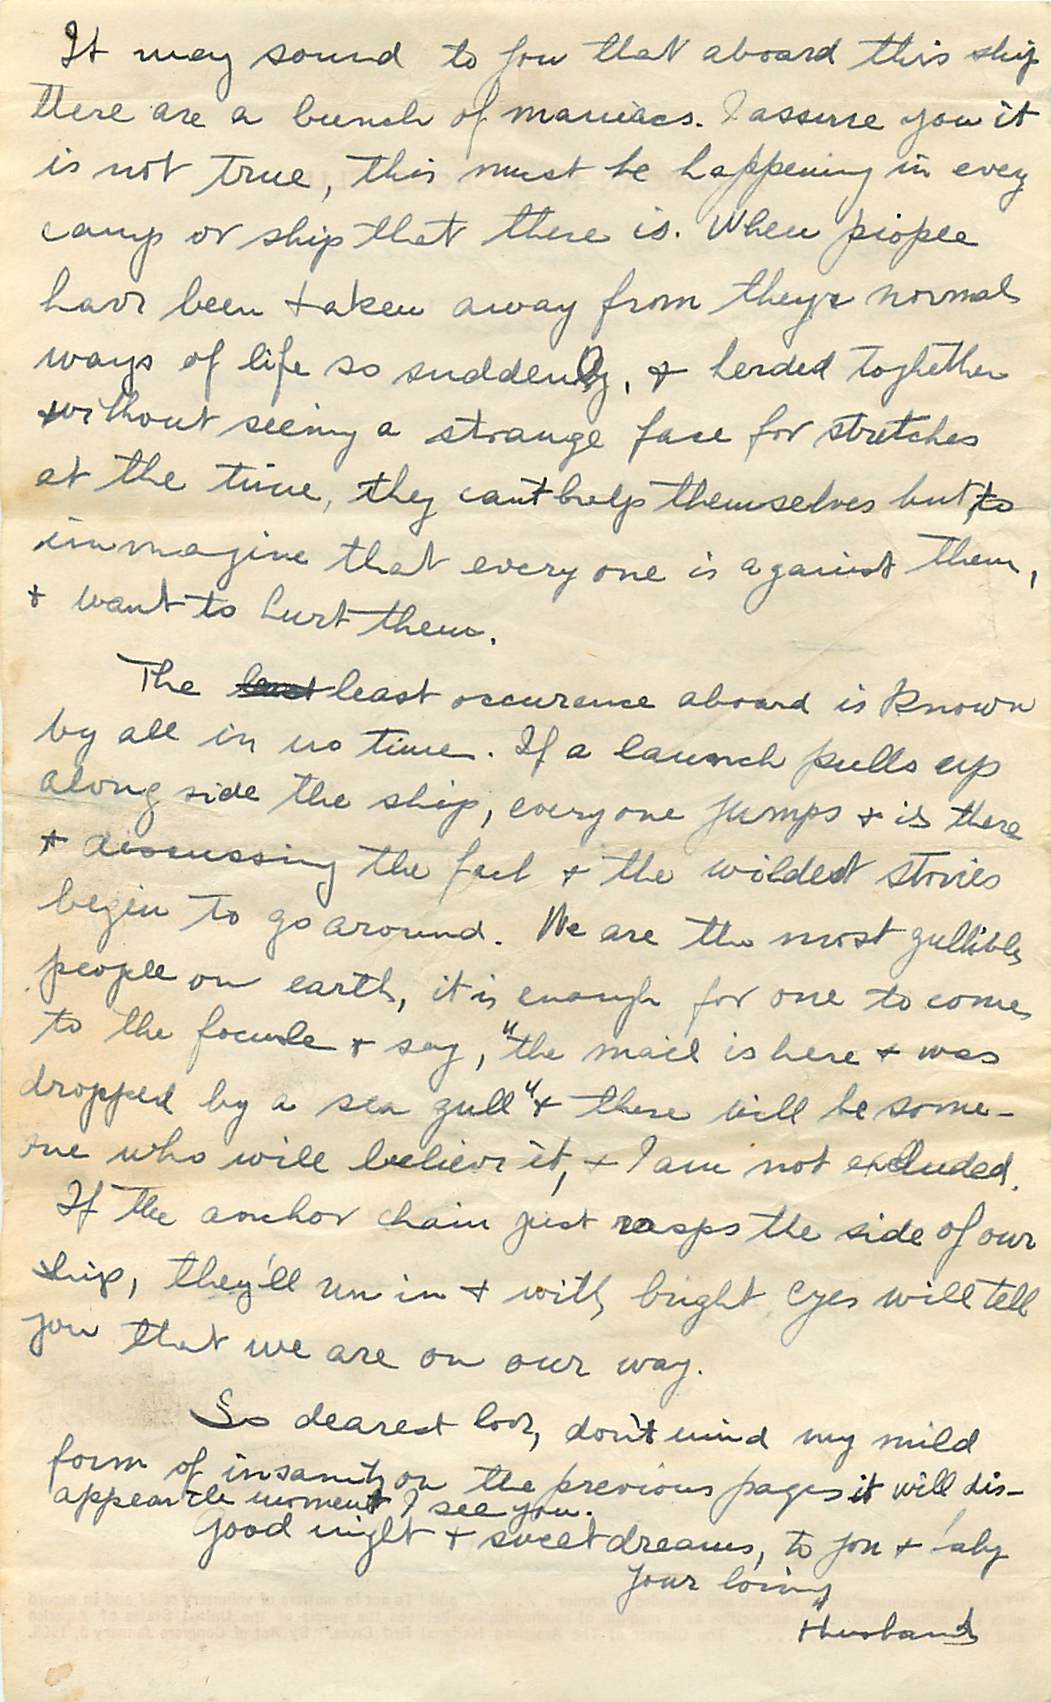 It may sound to you that aboard this ship
there are a bunch of maniacs. I assure you it
is not true, this must be happening in evey
camp or ship that there is. When piople
have been taken away from theyr normal
ways of life so suddenly, + herded toghether
without seeing a strange face for stretches
at the time, they can't help themselves but, to
immagine that every one is against them,
+ want to hurt them.
The least occurence aboard is known
by all in no time. If a launch pulls up
along side the ship, everyone jumps + is there
+ discussing the fact + the wildest stories
begin to go around. We are the most gullible
people on earth, it is enough for one to come
to the focusle + say, "the mail is here + was
dropped by a sea gull" + there will be some-
one who will believe it, + I am not excluded.
If the anchor chain just rasps the side of our
ship, they'll run in + with bright eyes will tell
you that we are on our way.
So dearest love, don't mind my mild
form of insanity on the previous pages it will dis-
appear the moment I see you.
Good night + sweet dreams, to you + baby
Your loving
Husband